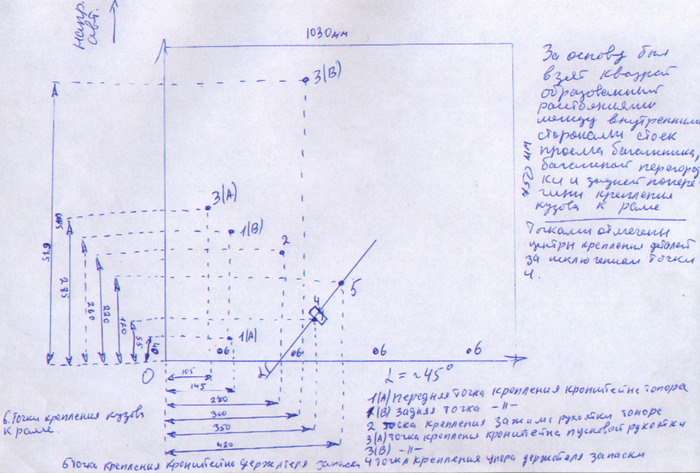 Напр.
авт.
1030мм
За основу был
взят квадрат
образованный
растояниями
между внутренними
сторонами стоек
проема багажника,
багажной перегород
ки и задней попере
чины крепления
кузова к раме
Точками отмечены
центры крепления деталей
за исключением точки
4.
3(В)
3(А)
1(В)
2
5
4
1(А)
260
220
120
55
40
0
6
6
6
6
L
L=~45°
105
145
280
300
350
420
6.Точки крепления кузова
к раме.
1(А) Передняя точка крепления кронштейна топора
1(В) Задняя точка -//-
2 точка крепления зажима рукятки топора
3(А) точка крепления кронштейна пусковой рукятки
3(В) -//-
4 Точка крепления упра держателя запаски
5 точка крепления кронштейна держателя запаски